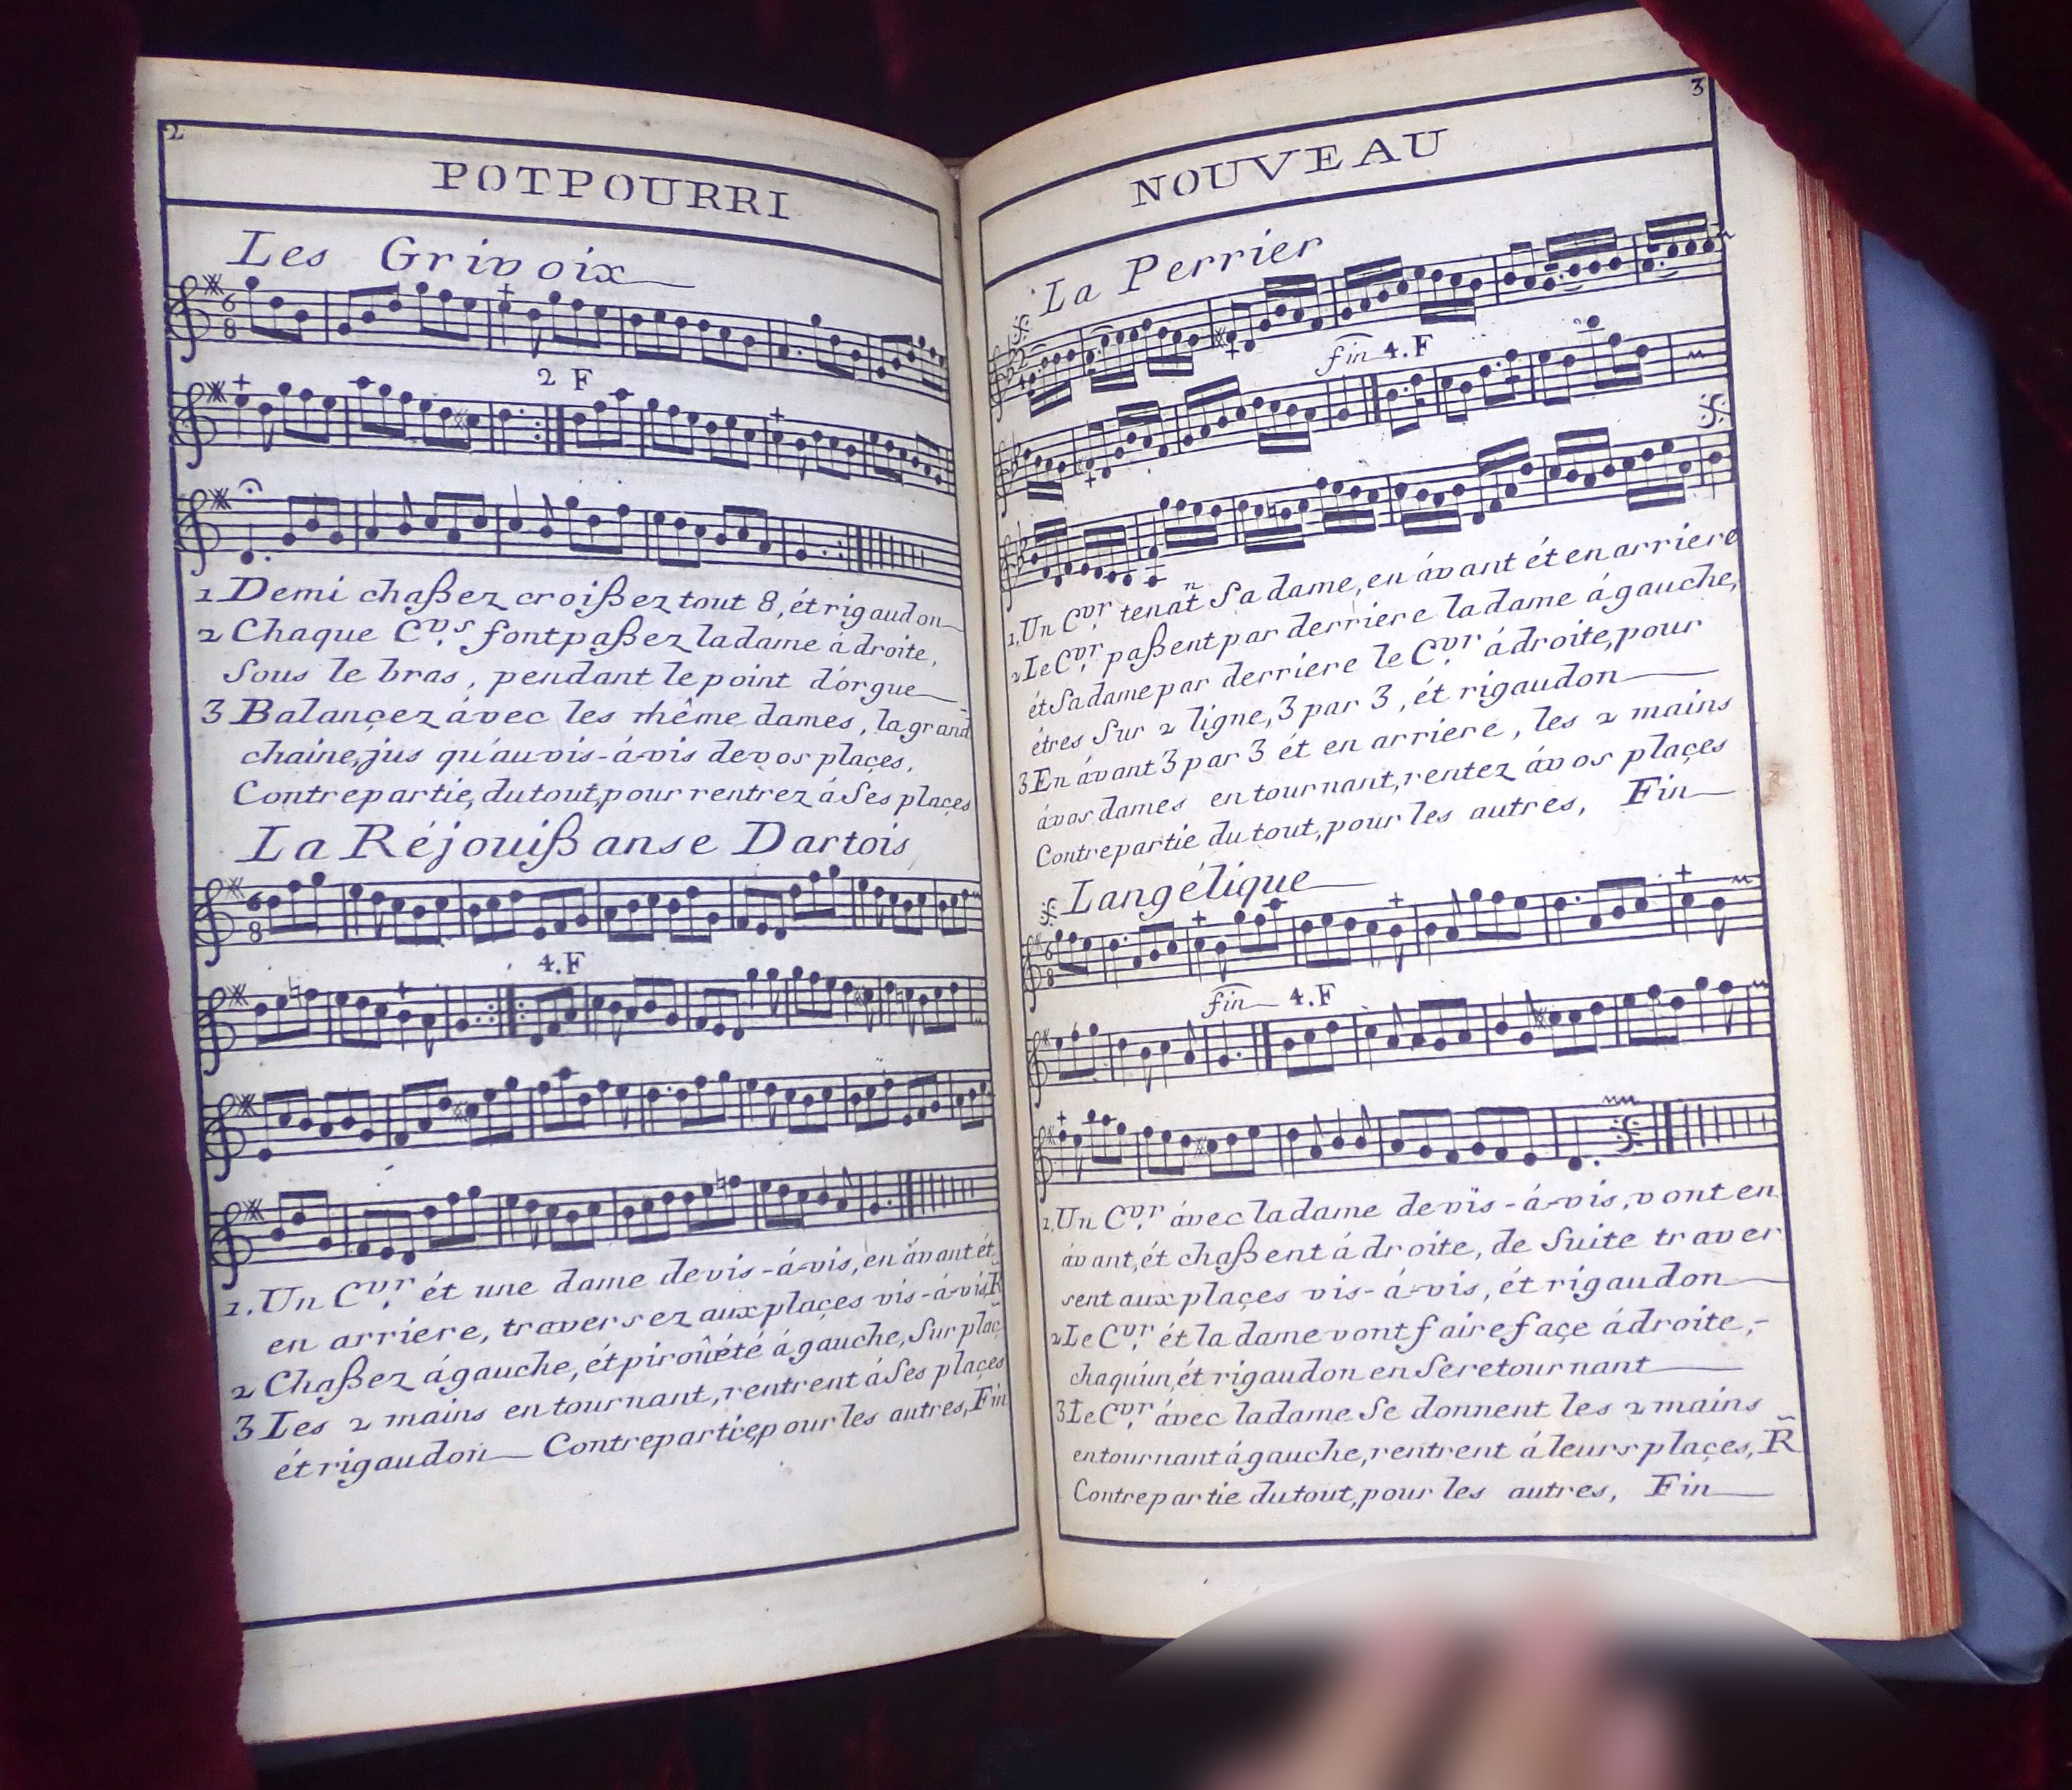 2
POTPOURRI
Les Grivoix
6
8
2 F
1 Demi chaßez croißez tout 8, ét rigaudon
2 Chaque Cvs. font paßez la dame á droite,
Sous le bras, pendant le point d'orgue
3 Balançez ávec les même dames, la grand
chaine, jus qu'au vis-á-vis de vos plaçes,
Contrepartie, du tout, pour rentrez á Ses plaçes
La Réjouißanse Dartois
6
8
4.F
1. Un Cvr. ét une dame de vis-á-vis, en ávant ét
en arriere, traversez aux plaçes vis-á-vis, R
2 Chaßez á gauche, ét piroûété á gauche, Sur plaç
3 Les 2 mains en tournant, rentrent á Ses plaçes
ét rigaudon Contrepartie, pour les autres, Fin
3
NOUVEAU
La Perrier
2
4
fin 4.F
1. Un Cvr. tenat̄ Sa dame, en ávant ét en arriere
2 Le Cvr. paßent par derriere la dame á gauche,
ét Sa dame par derriere le Cvr. á droite, pour
étres Sur 2 ligne, 3 par 3, ét rigaudon
3 En ávant 3 par 3 ét en arriere, les 2 mains
á vos dames en tournant, rentez á vos plaçes
Contrepartie du tout, pour les autres, Fin
Langélique
6
8
fin 4.F
1. Un Cvr. ávec la dame de vis-á-vis, vont en
ávant, ét chaßent á droite, de Suite traver
sent aux plaçes vis-á-vis, ét rigaudon
2 Le Cvr. ét la dame vont faire façe á droite,-
chaqu'un, ét rigaudon en Se retournant
3 Le Cvr. ávec la dame Se donnent les 2 mains
en tournant á gauche, rentrent á leurs plaçes, R̃
Contrepartie du tout, pour les autres, Fin